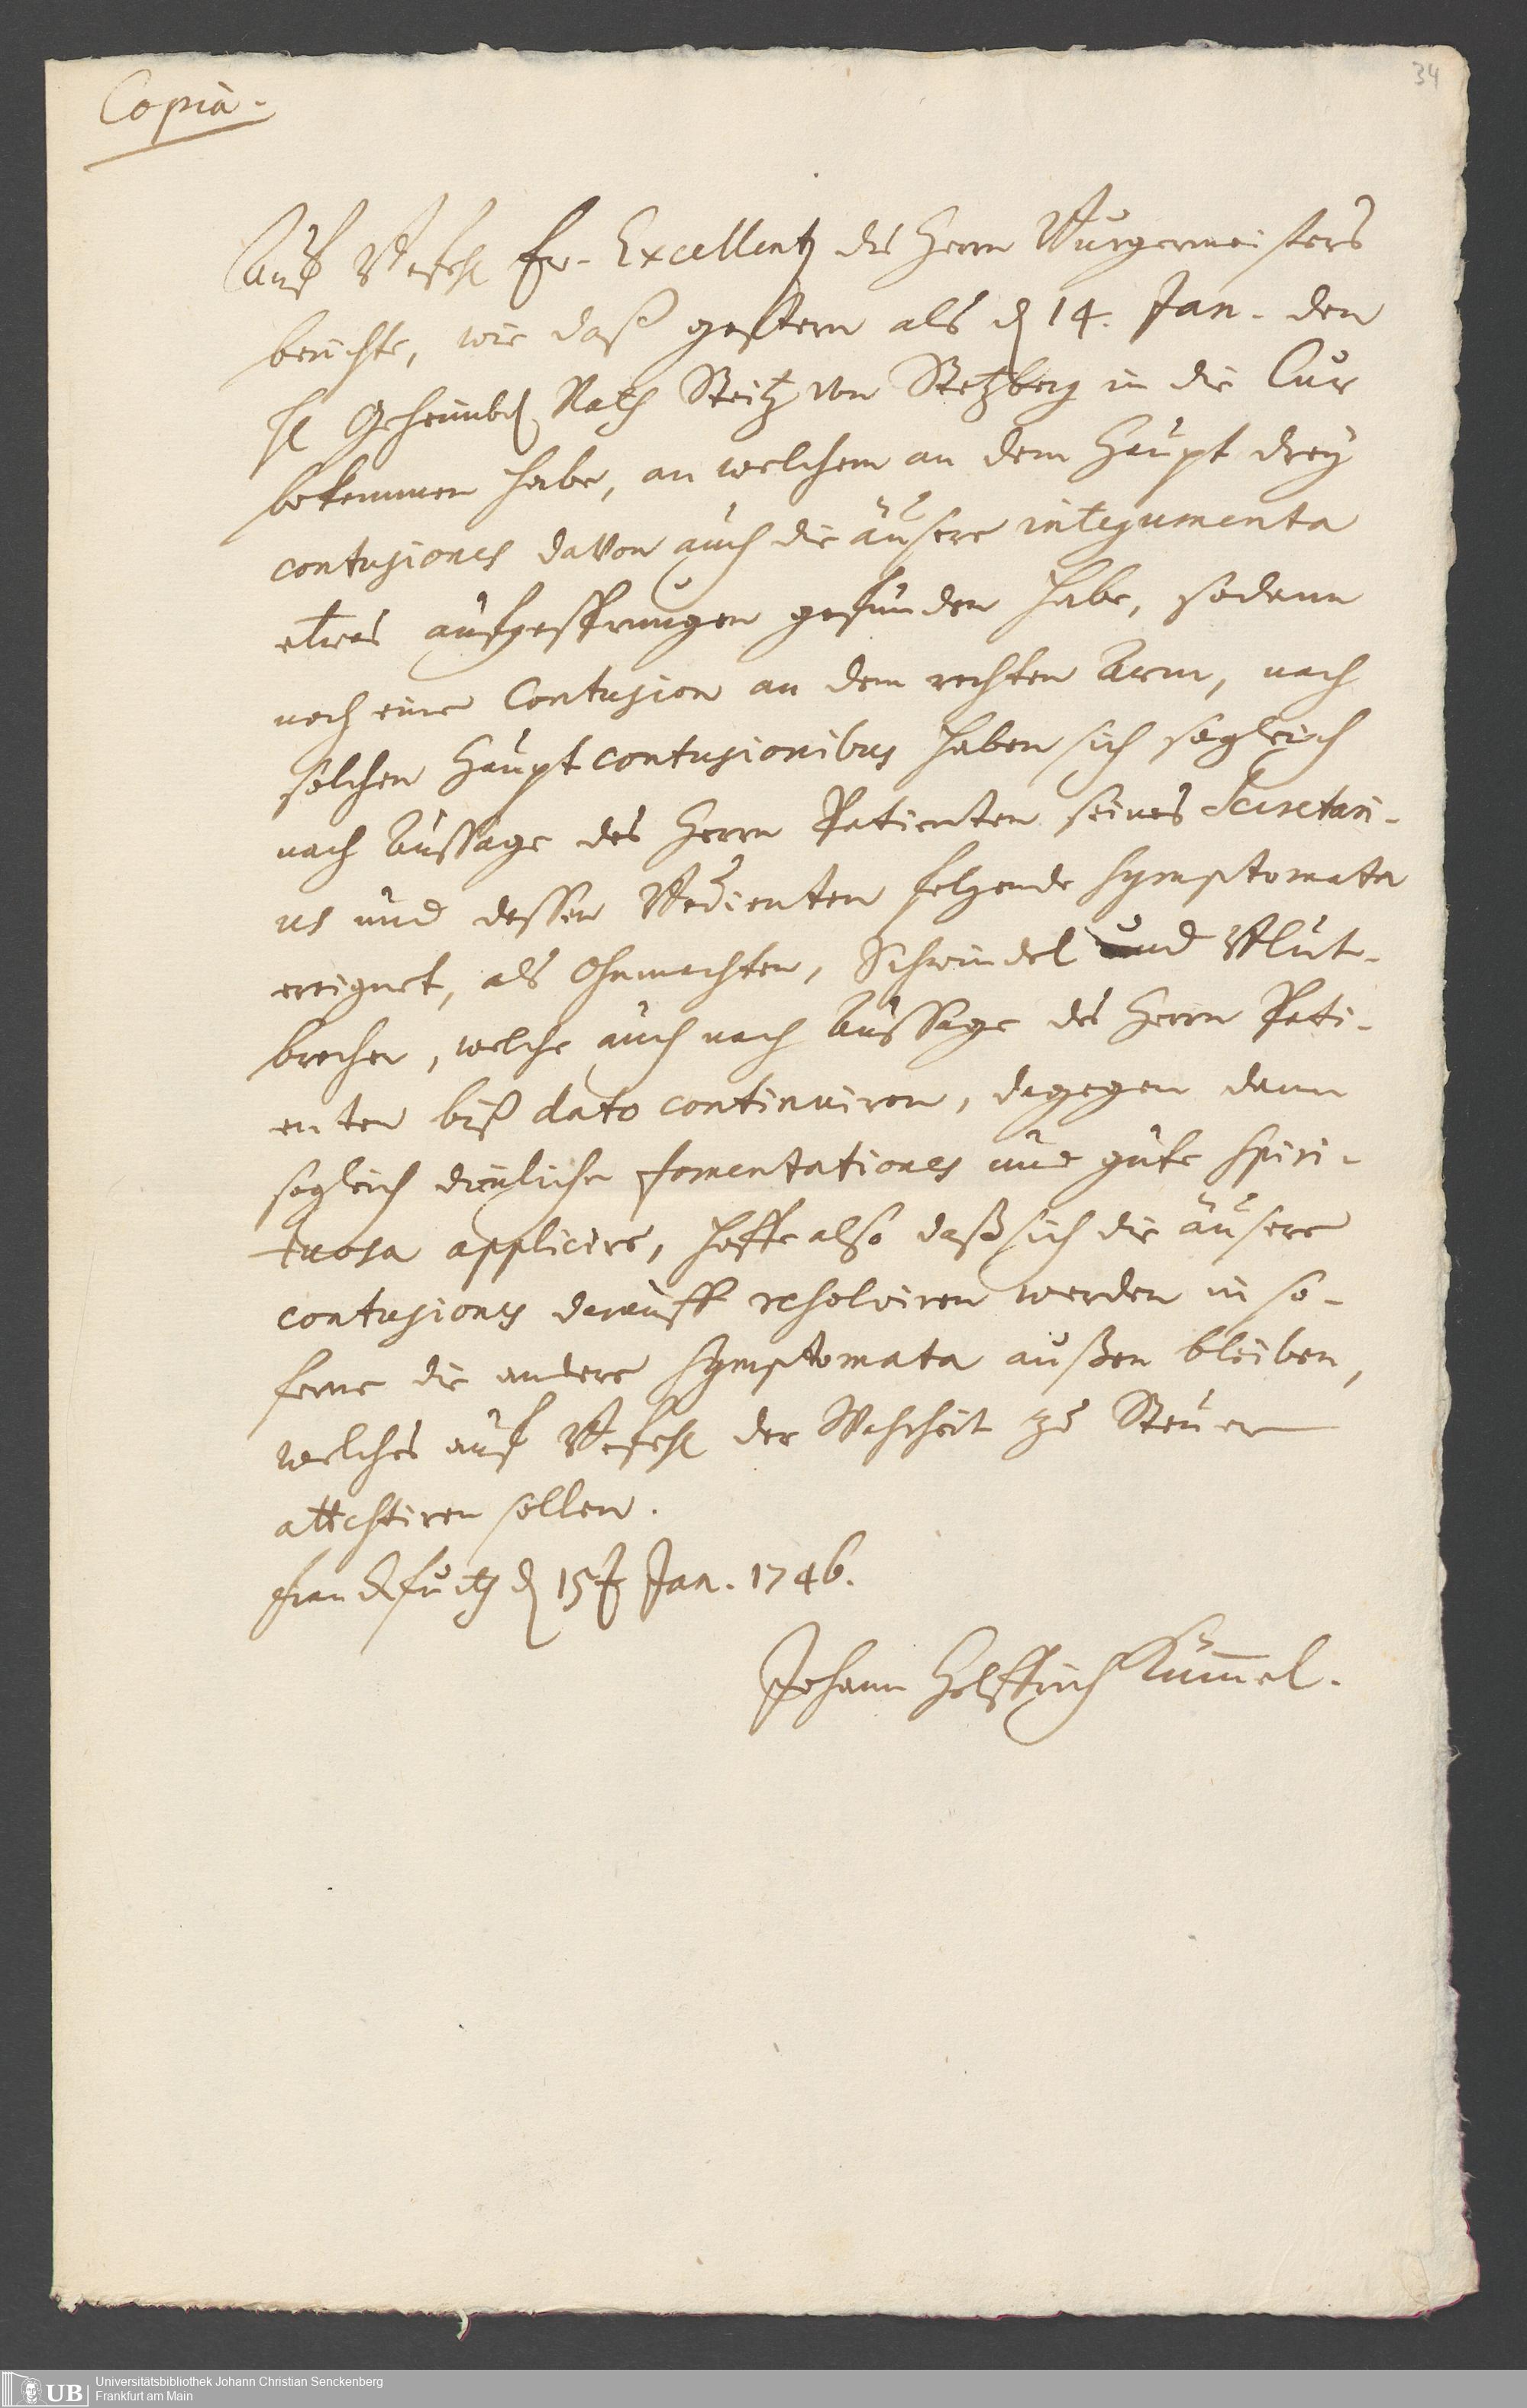 34
Copia.
Auf Befehl Sr. Excellentz des Herrn Burgermeisters
berichte, wie daß gestern als d 14. Jan. den
H Geheimbd Rath Steitz von Stetzberg in die Cur
bekommen habe, an welchem an dem Haupt drey
contusiones davon auch die äusere integumenta
etwas aufgesprungen gefunden habe, sodann
noch eine Contusion an dem rechten Arm, nach
solchen Haupt contusionibus haben sich sogleich
nach Aussage des Herrn Patienten seines Secretari-
us und dessen Bedienten folgende Symptomata
ereignet, als Ohnmachten, Schwindel und Blut-
brechen, welche auch nach Aussage des Herrn Pati-
enten biß dato continuiren, dagegen dann
sogleich dienliche fomentationes und gute Spiri-
tuosa applicire, hoffe also daß sich die äusere
contusiones darauff resolviren werden in so-
ferne die andere Symptomata außen bleiben,
welches auf Befehl der Wahrheit zu Steuer
attestiren sollen.
Franckfurth d 15t Jan. 1746.
Johann Helffrich Kümmel.
UB
Universitätsbibliothek Johann Christian Senckenberg
Frankfurt am Main